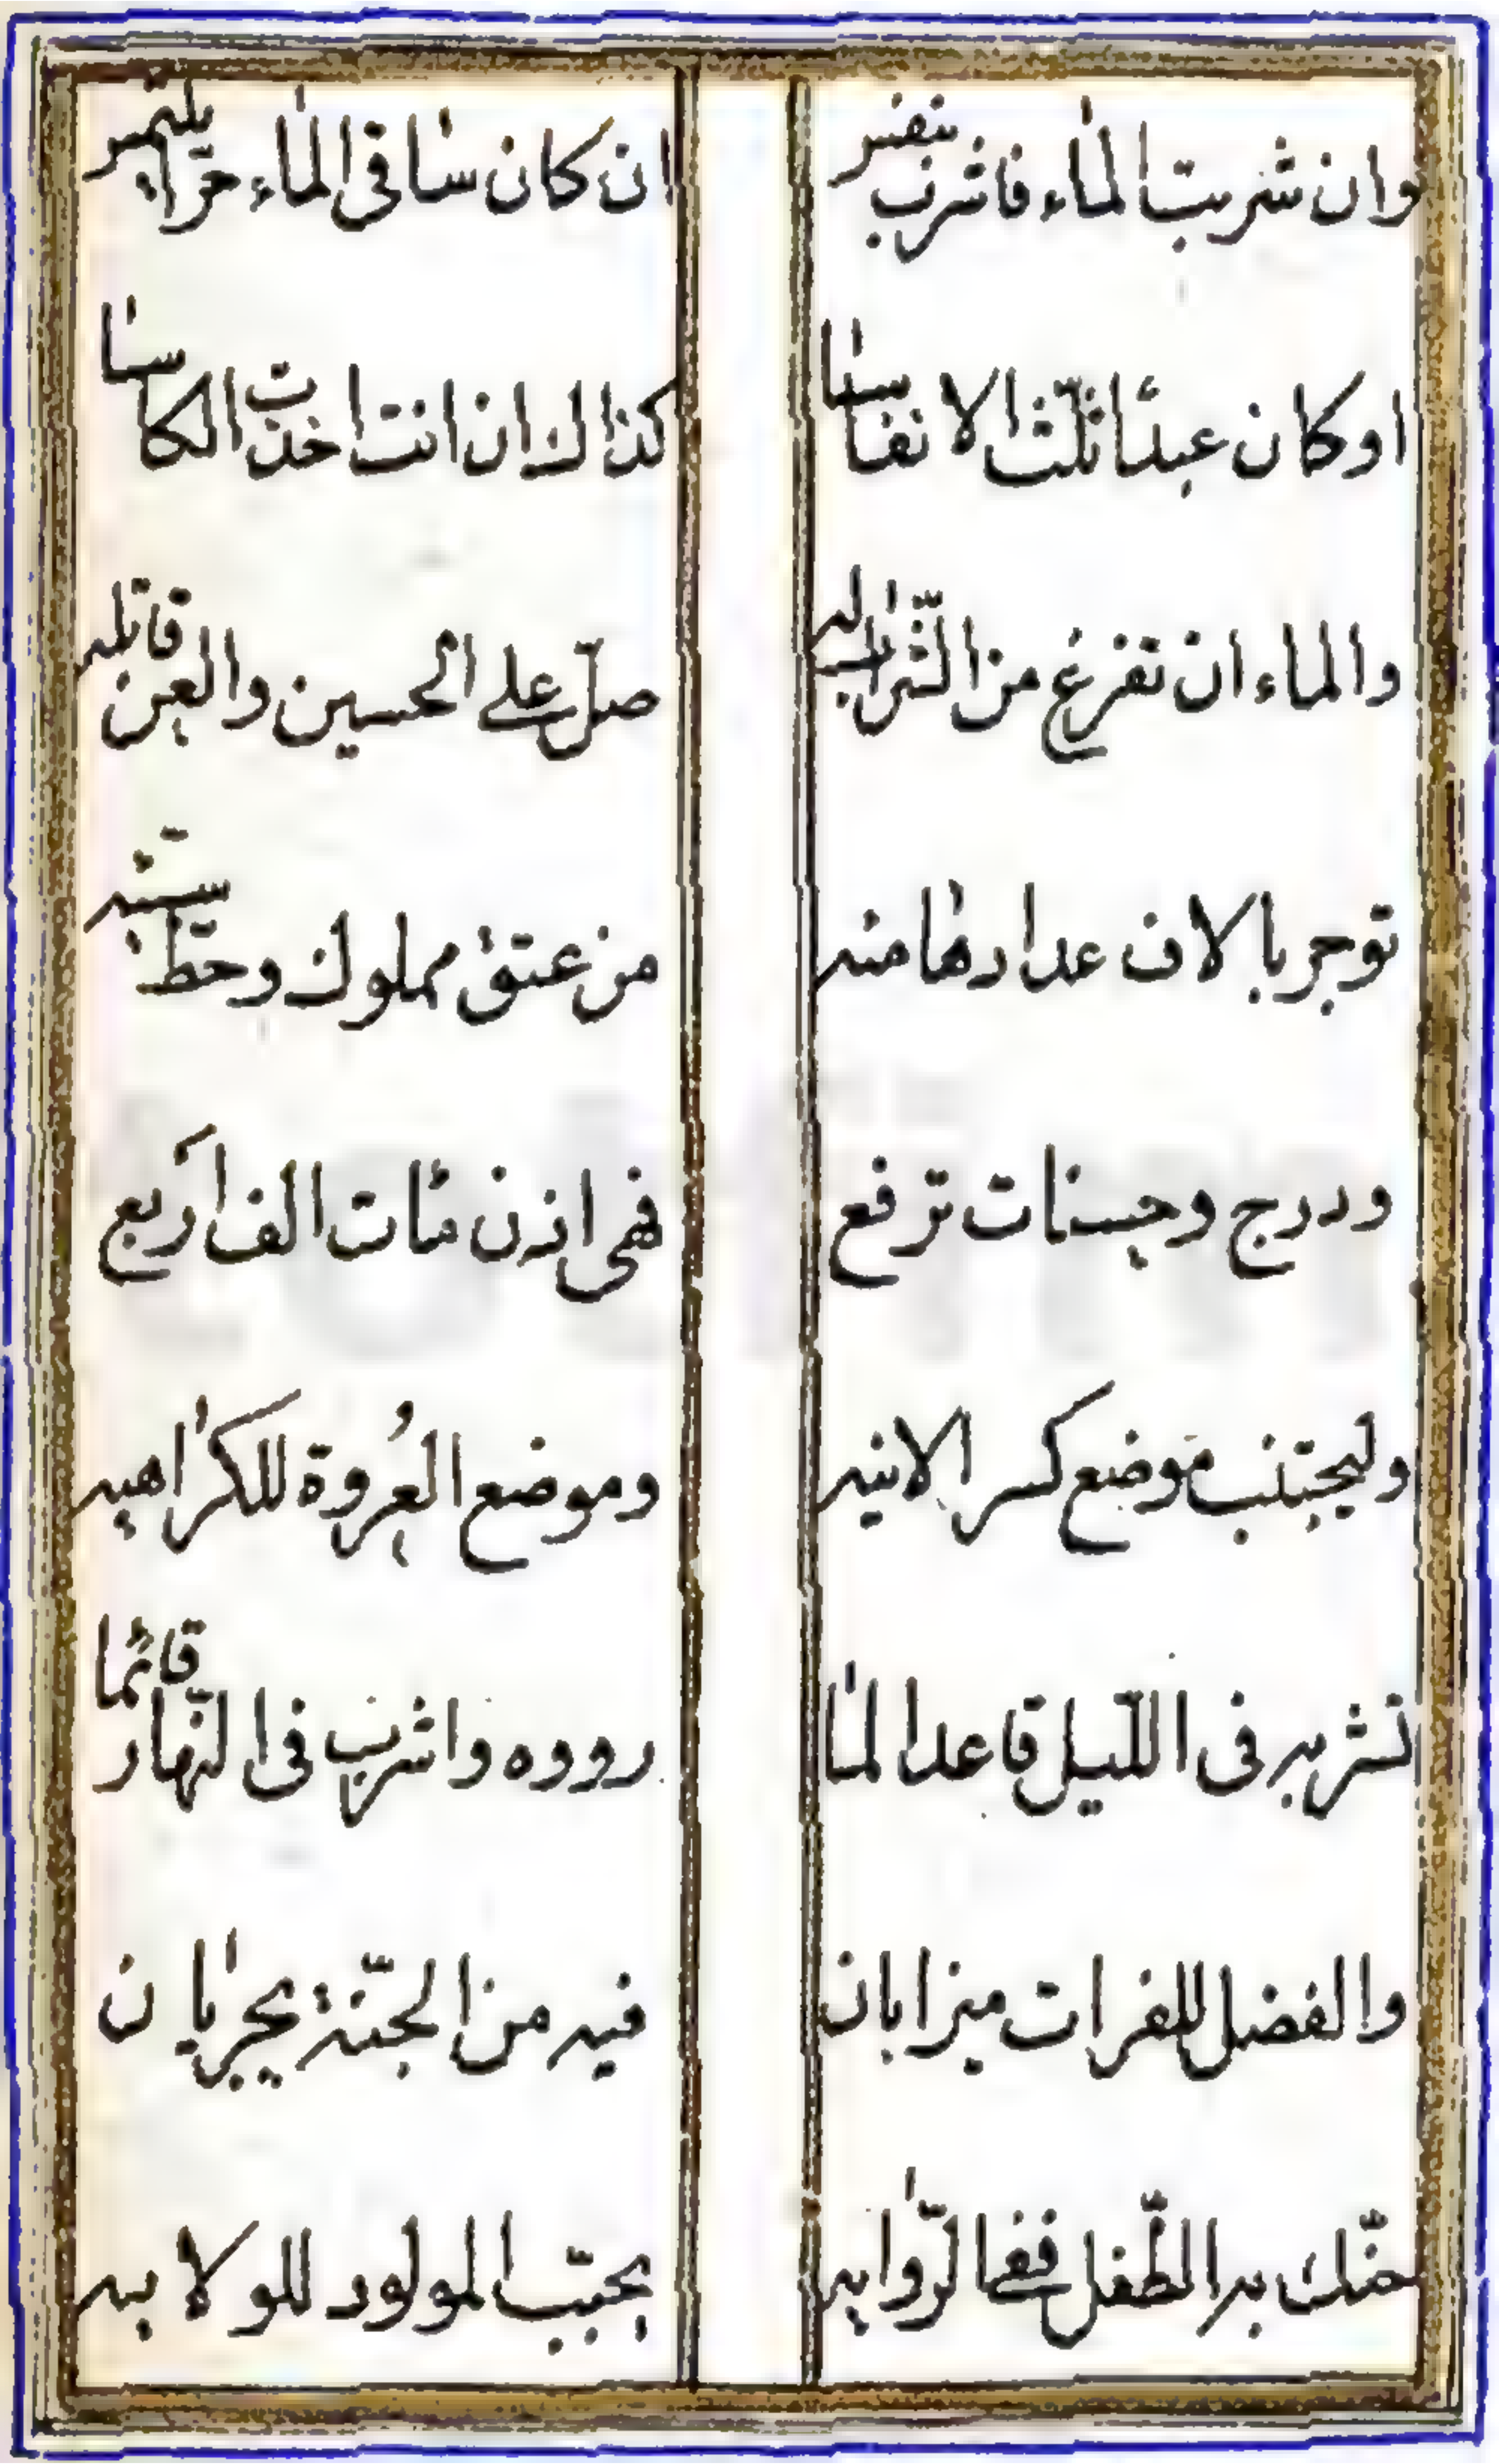 وان شربت الماء فاشرب بنفس
ان كان ساقی الماء حرّا يلتمس
او كان عبدًا ثلّث الانفاسا
كذاك ان انت اخذت الكاسا
والماء ان تفرغ من الشّراب له
صلّ علی الحسين والعن قاتله
توجر بالاف عدادها منه
من عتق مملوك وحطّ سيّئه
ودرج وحسنات ترفع
فهی اذن مئات الف اربع
وليجتنب موضع كسر الانيه
وموضع العُروة للكراهيه
تشربه فی اللّيل قاعدا لما
رووه واشرب فی النّهار قائما
والفضل للفرات ميزابان
فيه من الجنّة يجريان
حنّك به الطّفل ففی الرّوايه
يحبّب المولود للولايه